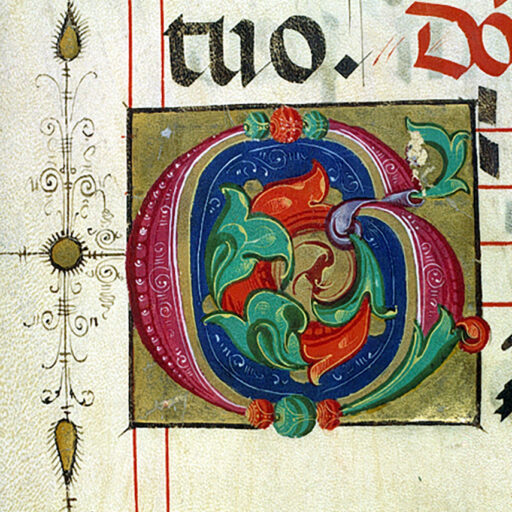 tuo. Do
G